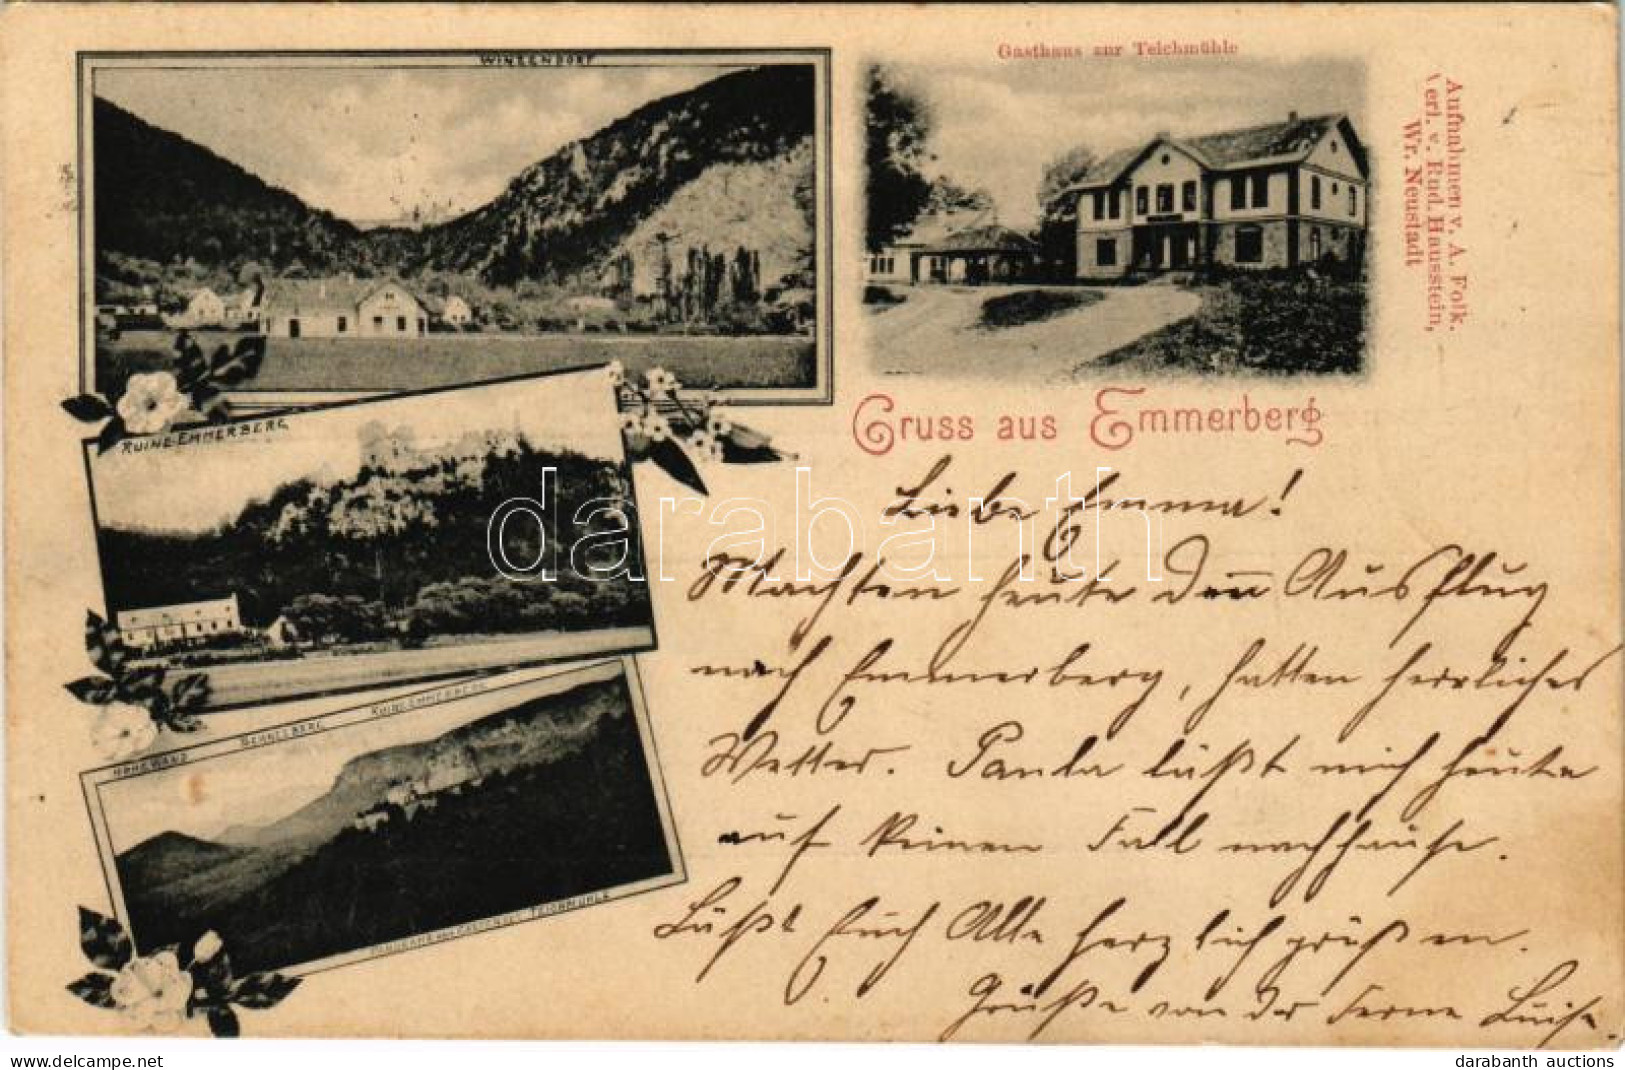 WINZENDORF
Gasthaus zur Teichmühle
Aufnahmen v. A. Folk.
Verl. v. Rud. Hausstein,
Wr. Neustadt
RUINE-EMMERBERG
Gruss aus Emmerberg
HOHE WAND SCHNEEBERG RUINE EMMERBERG
TEICHMÜHLE
Liebe Emma!
Machten heute den Ausflug
nach Emmerberg, hatten herrliches
Wetter. Paula läßt mich heute
auf keinen Fall nachhause.
Läßt Euch Alle herzlich grüßen.
Grüße von der Ferne Luise.
darabanth
delcampe.net
darabanth auctions